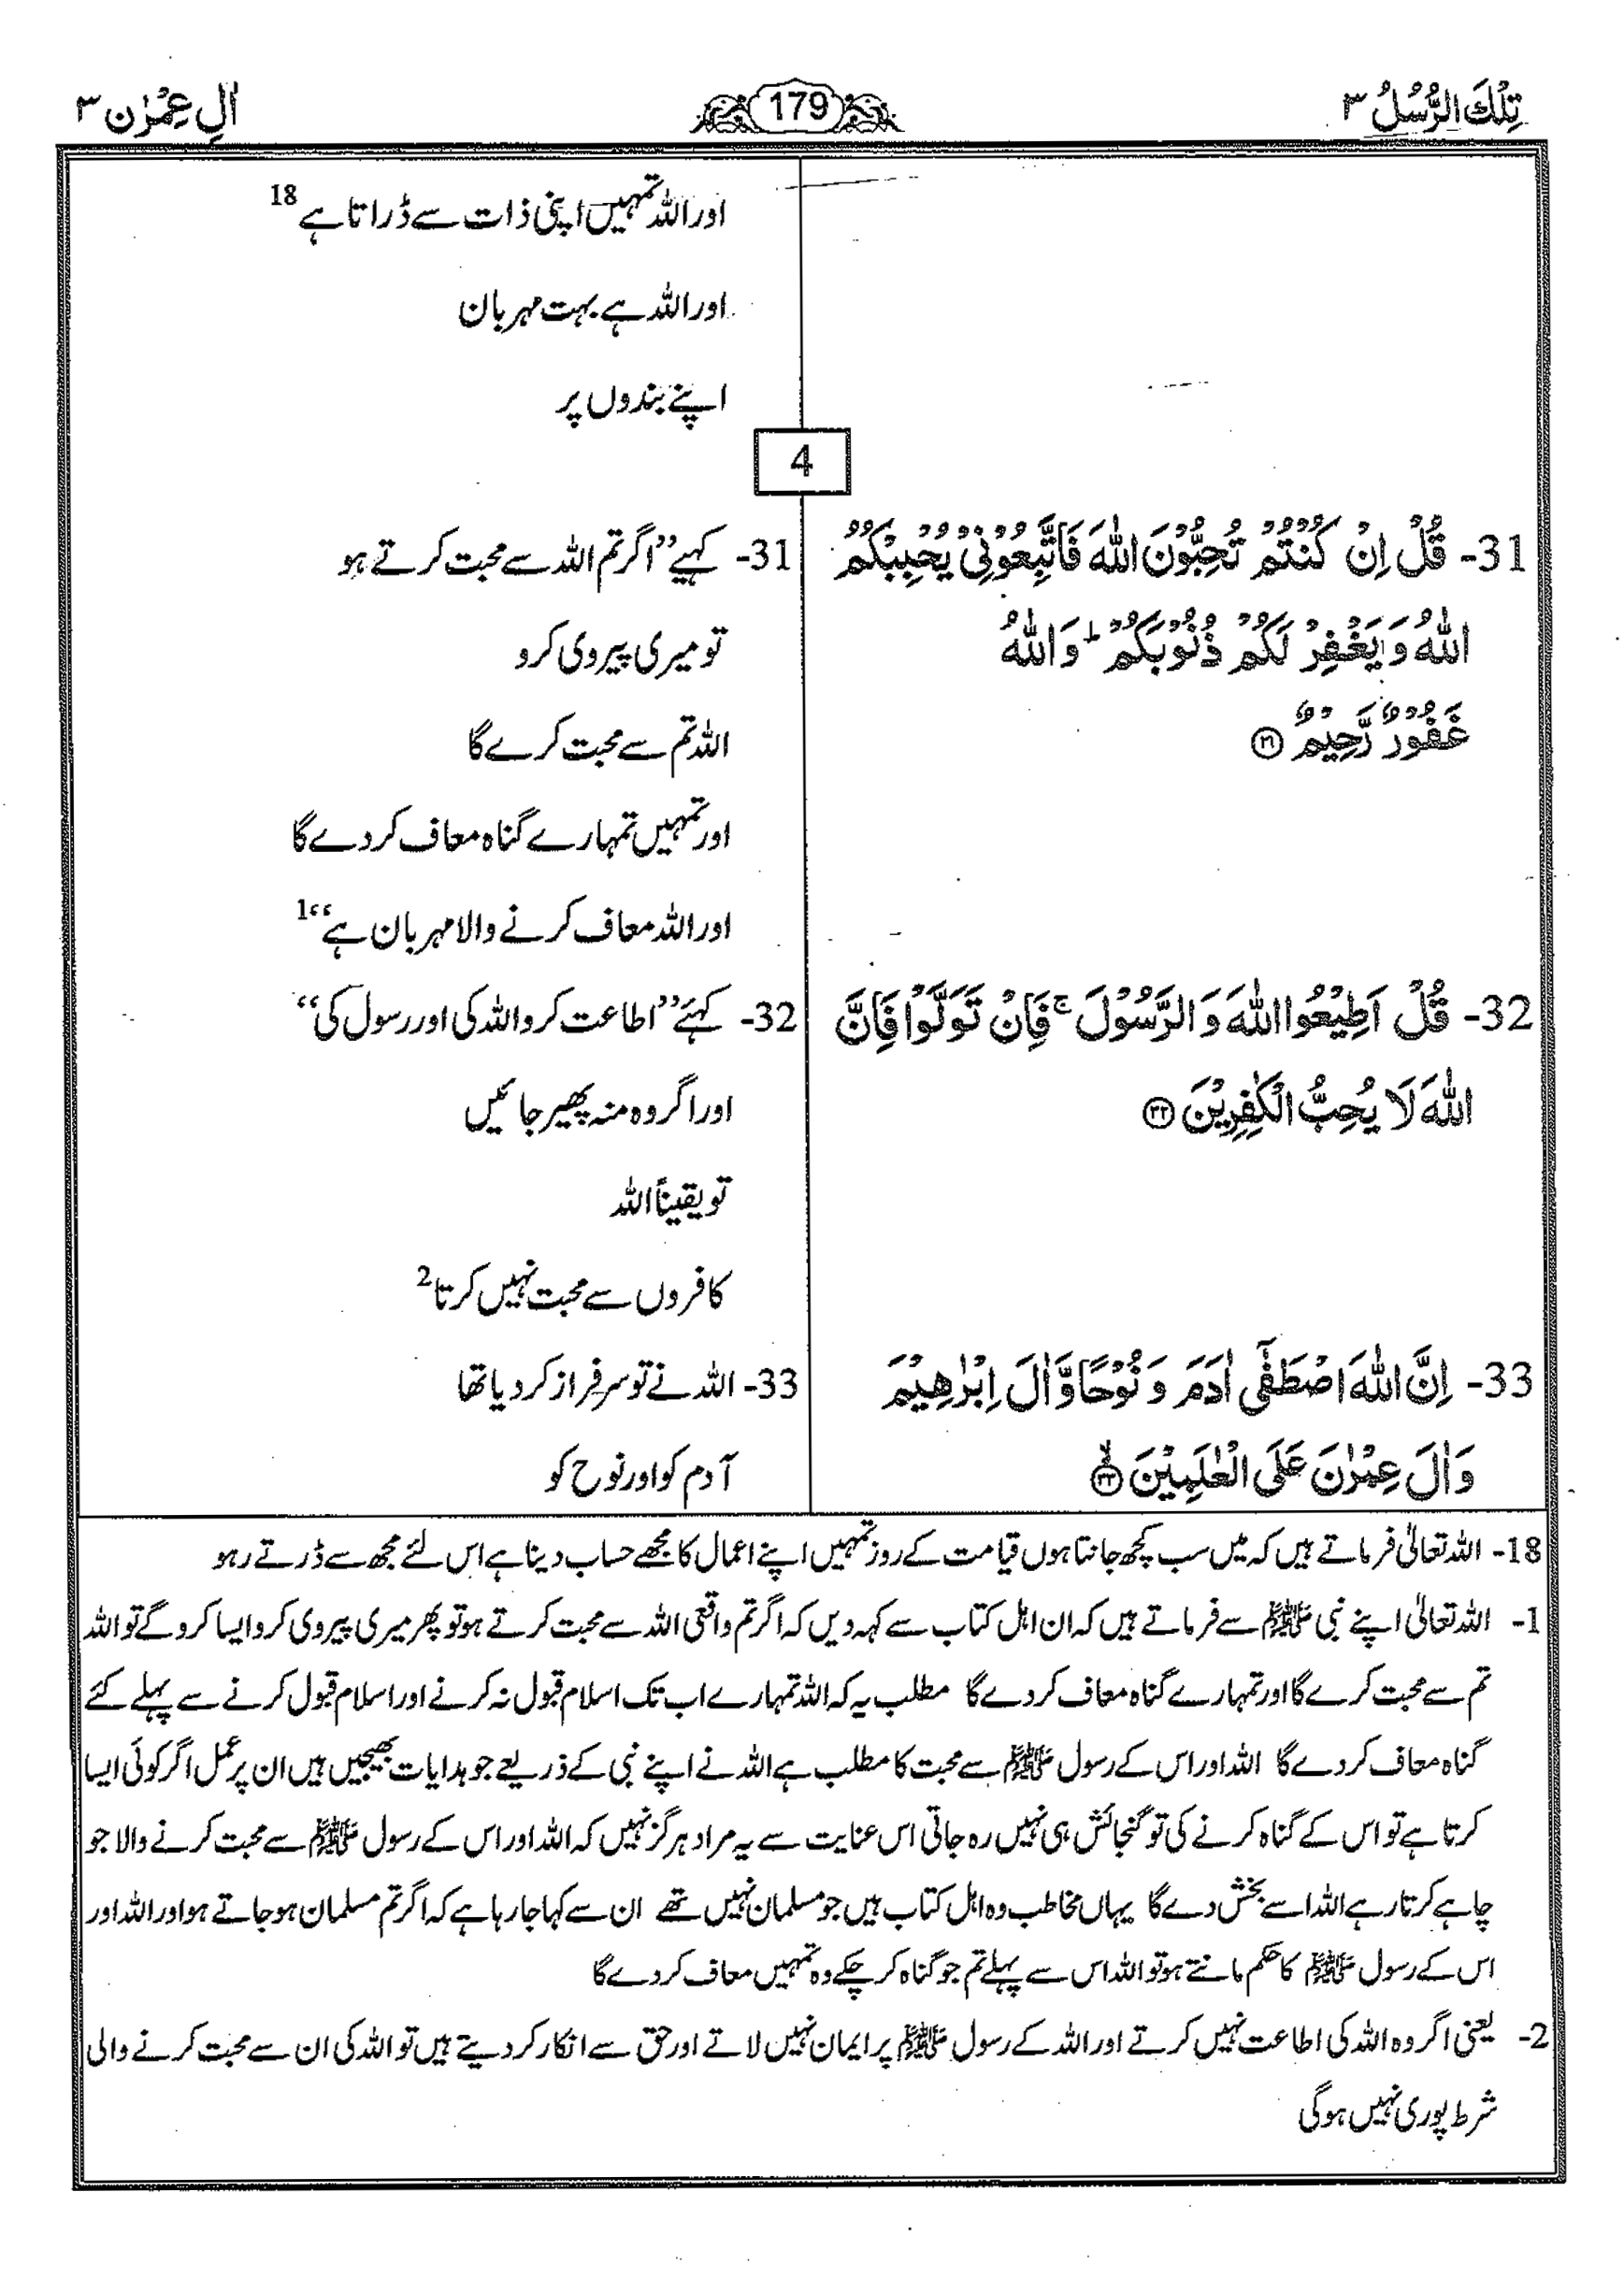 تِلْكَ الرُّسُلُ ٣
179
اٰلِ عِمْرٰن ٣
اور اللہ تمہیں اپنی ذات سے ڈراتا ہے 18
اور اللہ ہے بہت مہربان
اپنے بندوں پر
4
31- قُلْ اِنْ كُنْتُمْ تُحِبُّوْنَ اللّٰهَ فَاتَّبِعُوْنِیْ یُحْبِبْكُمُ
اللّٰهُ وَ یَغْفِرْ لَكُمْ ذُنُوْبَكُمْ ؕ وَ اللّٰهُ
غَفُوْرٌ رَّحِیْمٌ ۳۱
31- کہیے ”اگر تم اللہ سے محبت کرتے ہو
تو میری پیروی کرو
اللہ تم سے محبت کرے گا
اور تمہیں تمہارے گناہ معاف کر دے گا
اور اللہ معاف کرنے والا مہربان ہے“ 1
32- قُلْ اَطِیْعُوا اللّٰهَ وَ الرَّسُوْلَ ۚ فَاِنْ تَوَلَّوْا فَاِنَّ
اللّٰهَ لَا یُحِبُّ الْكٰفِرِیْنَ ۳۲
32- کہئے ”اطاعت کرو اللہ کی اور رسول کی“
اور اگر وہ منہ پھیر جائیں
تو یقیناً اللہ
کافروں سے محبت نہیں کرتا 2
33- اِنَّ اللّٰهَ اصْطَفٰۤی اٰدَمَ وَ نُوْحًا وَّ اٰلَ اِبْرٰهِیْمَ
وَ اٰلَ عِمْرٰنَ عَلَی الْعٰلَمِیْنَ ۙ ۳۳
33- اللہ نے تو سرفراز کر دیا تھا
آدم کو اور نوح کو
18- اللہ تعالیٰ فرماتے ہیں کہ میں سب کچھ جانتا ہوں قیامت کے روز تمہیں اپنے اعمال کا مجھے حساب دینا ہے اس لئے مجھ سے ڈرتے رہو
1- اللہ تعالیٰ اپنے نبی ﷺ سے فرماتے ہیں کہ ان اہل کتاب سے کہہ دیں کہ اگر تم واقعی اللہ سے محبت کرتے ہو تو پھر میری پیروی کرو ایسا کرو گے تو اللہ
تم سے محبت کرے گا اور تمہارے گناہ معاف کر دے گا مطلب یہ کہ اللہ تمہارے اب تک اسلام قبول نہ کرنے اور اسلام قبول کرنے سے پہلے کئے
گناہ معاف کر دے گا اللہ اور اس کے رسول ﷺ سے محبت کا مطلب ہے اللہ نے اپنے نبی کے ذریعے جو ہدایات بھیجیں ہیں ان پر عمل اگر کوئی ایسا
کرتا ہے تو اس کے گناہ کرنے کی تو گنجائش ہی نہیں رہ جاتی اس عنایت سے یہ مراد ہرگز نہیں کہ اللہ اور اس کے رسول ﷺ سے محبت کرنے والا جو
چاہے کرتا رہے اللہ اسے بخش دے گا یہاں مخاطب وہ اہل کتاب ہیں جو مسلمان نہیں تھے ان سے کہا جا رہا ہے کہ اگر تم مسلمان ہو جاتے ہو اور اللہ اور
اس کے رسول ﷺ کا حکم مانتے ہو تو اللہ اس سے پہلے تم جو گناہ کر چکے وہ تمہیں معاف کر دے گا
2- یعنی اگر وہ اللہ کی اطاعت نہیں کرتے اور اللہ کے رسول ﷺ پر ایمان نہیں لاتے اور حق سے انکار کر دیتے ہیں تو اللہ کی ان سے محبت کرنے والی
شرط پوری نہیں ہوگی